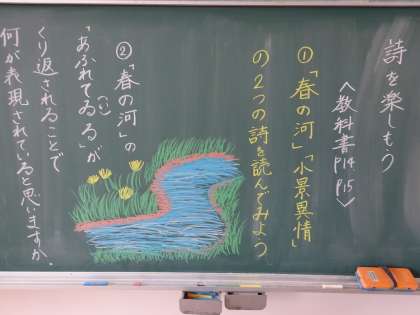 詩を楽しもう
<教科書P14 P15>
①「春の河」「小景異情」
の2つの詩を読んでみよう
②「春の河」の
「あふれてゐ(い)る」が
くり返されることで
何が表現されていると思いますか。